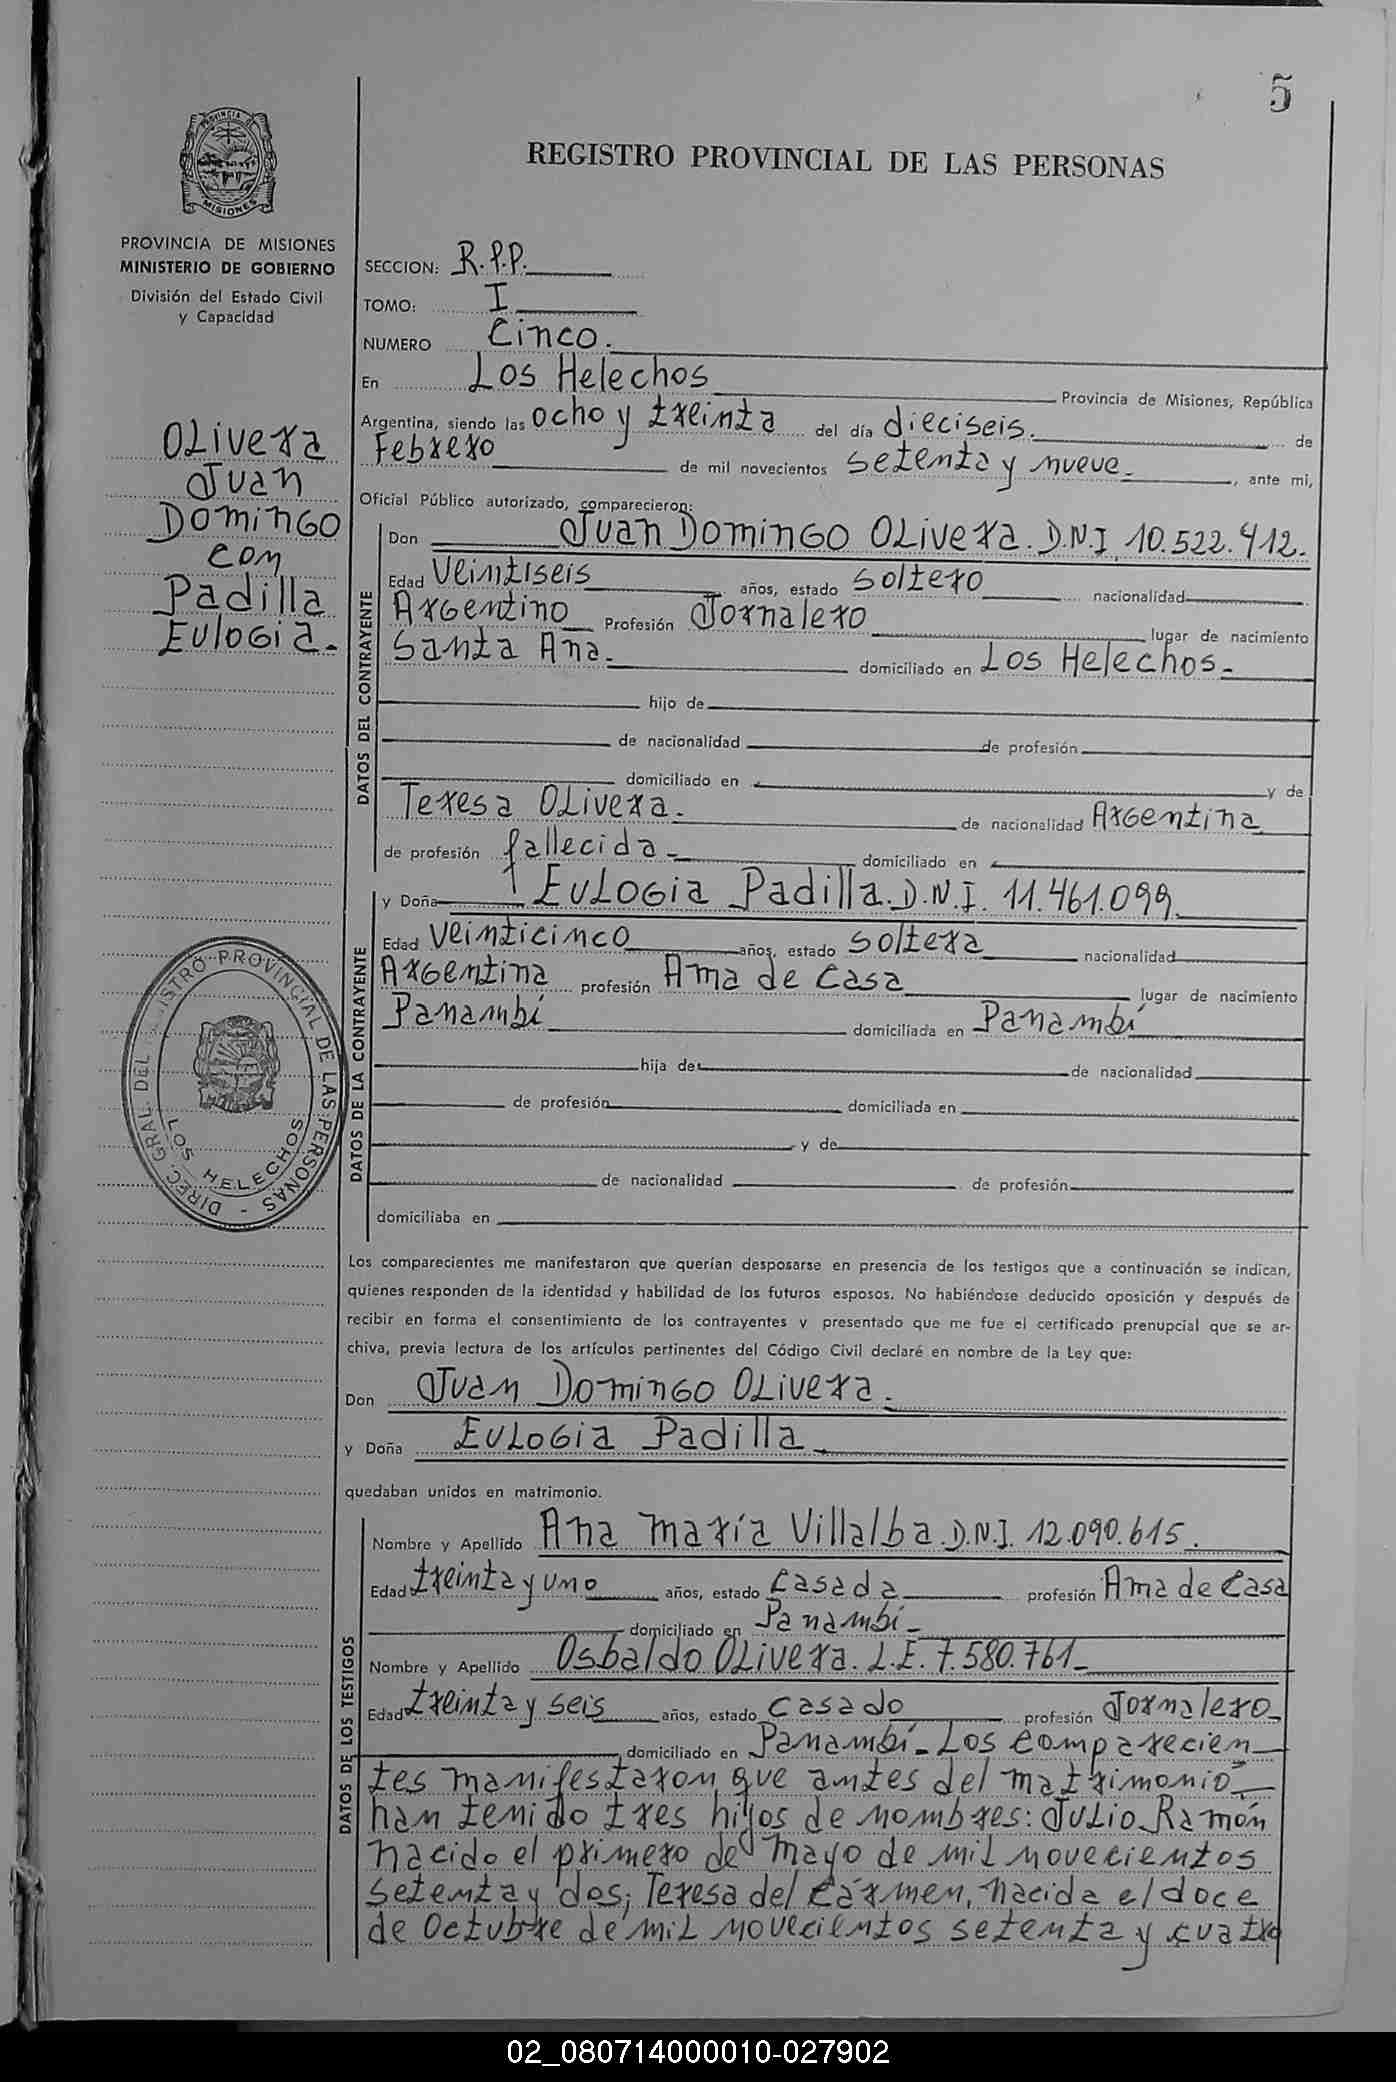 5
REGISTRO PROVINCIAL DE LAS PERSONAS
PROVINCIA DE MISIONES
PROVINCIA DE MISIONES
MINISTERIO DE GOBIERNO
División del Estado Civil
y Capacidad
OLivera
Juan
Domingo
con
Padilla
Eulogia.-
DIREC. GRAL. DEL REGISTRO PROVINCIAL DE LAS PERSONAS -
LOS HELECHOS
SECCION: R.P.P.
TOMO: I
NUMERO Cinco.
En Los Helechos Provincia de Misiones, República
Argentina, siendo las ocho y treinta del día dieciseis. de
Febrero de mil novecientos setenta y nueve.- , ante mi,
Oficial Público autorizado, comparecieron:
DATOS DEL CONTRAYENTE
Don Juan Domingo OLivera. D.N.I. 10.522.412.
Edad Veintiseis años, estado soltero nacionalidad
Argentino Profesión Jornalero lugar de nacimiento
Santa Ana. domiciliado en Los Helechos.-
hijo de
de nacionalidad de profesión
domiciliado en y de
Teresa OLivera. de nacionalidad Argentina
de profesión fallecida - domiciliado en
DATOS DE LA CONTRAYENTE
y Doña Eulogia Padilla. D.N.I. 11.461.099.
Edad Veinticinco años, estado soltera nacionalidad
Argentina profesión Ama de Casa lugar de nacimiento
Panambí domiciliada en Panambí
hija de de nacionalidad
de profesión domiciliada en
y de
de nacionalidad de profesión
domiciliaba en
Los comparecientes me manifestaron que querían desposarse en presencia de los testigos que a continuación se indican,
quienes responden de la identidad y habilidad de los futuros esposos. No habiéndose deducido oposición y después de
recibir en forma el consentimiento de los contrayentes y presentado que me fue el certificado prenupcial que se ar-
chiva, previa lectura de los artículos pertinentes del Código Civil declaré en nombre de la Ley que:
Don Juan Domingo OLivera.
y Doña Eulogia Padilla.
quedaban unidos en matrimonio.
DATOS DE LOS TESTIGOS
Nombre y Apellido Ana María Villalba. D.N.I. 12.090.615.
Edad treinta y uno años, estado Casada profesión Ama de Casa
domiciliado en Panambí-
Nombre y Apellido Osbaldo OLivera. L.E. 7.580.761-
Edad treinta y seis años, estado casado profesión Jornalero-
domiciliado en Panambí.- Los comparecien-
tes manifestaron que antes del matrimonio
han tenido tres hijos de nombres: Julio Ramón
nacido el primero de Mayo de mil novecientos
setenta y dos; Teresa del Cármen, nacida el doce
de Octubre de mil novecientos setenta y cuatro
02_080714000010-027902